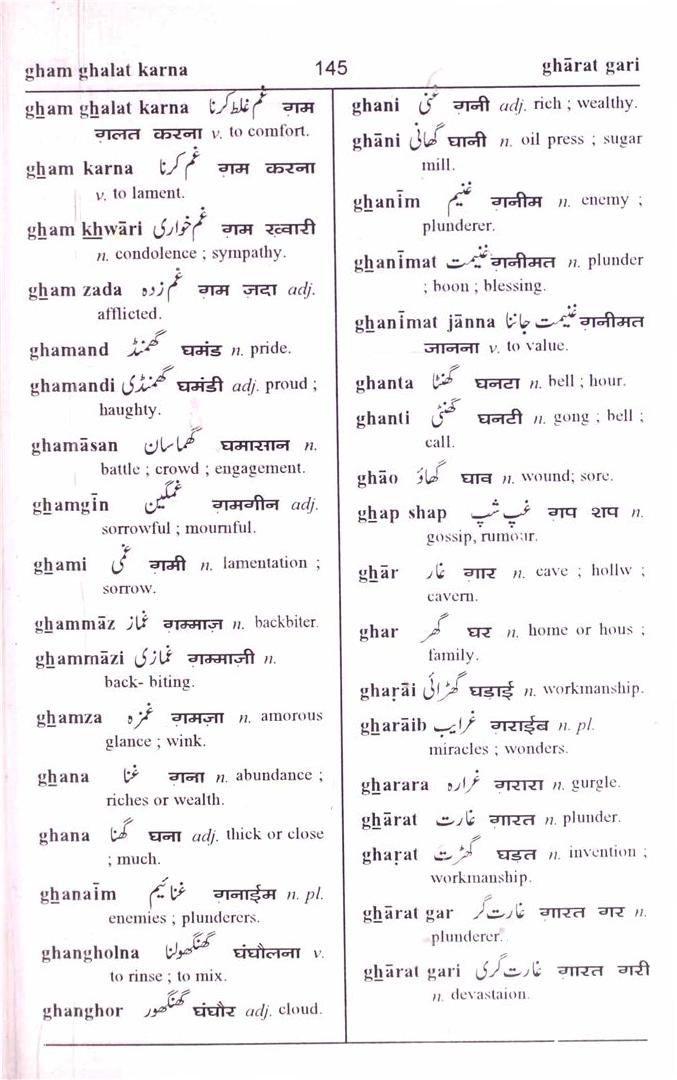 gham ghalat karna 145 ghārat gari
gham ghalat karna غم غلط کرنا ग़म
ग़लत करना v. to comfort.
gham karna غم کرنا ग़म करना
v. to lament.
gham khwāri غم خواری ग़म ख़्वारी
n. condolence ; sympathy.
gham zada غم زدہ ग़म ज़दा adj.
afflicted.
ghamand گھمنڈ घमंड n. pride.
ghamandi گھمنڈی घमंडी adj. proud ;
haughty.
ghamāsan گھماسان घमासान n.
battle ; crowd ; engagement.
ghamgīn غمگین ग़मगीन adj.
sorrowful ; mournful.
ghami غمی ग़मी n. lamentation ;
sorrow.
ghammāz غماز ग़म्माज़ n. backbiter.
ghammāzi غمازی ग़म्माज़ी n.
back- biting.
ghamza غمزہ ग़मज़ा n. amorous
glance ; wink.
ghana غنا ग़ना n. abundance ;
riches or wealth.
ghana گھنا घना adj. thick or close
; much.
ghanaīm غنائیم ग़नाईम n. pl.
enemies ; plunderers.
ghangholna گھنگھولنا घंघौलना v.
to rinse ; to mix.
ghanghor گھنگھور घंघौर adj. cloud.
ghani غنی ग़नी adj. rich ; wealthy.
ghāni گھانی घानी n. oil press ; sugar
mill.
ghanīm غنیم ग़नीम n. enemy ;
plunderer.
ghanīmat غنیمت ग़नीमत n. plunder
; boon ; blessing.
ghanīmat jānna غنیمت جاننا ग़नीमत
जानना v. to value.
ghanta گھنٹا घनटा n. bell ; hour.
ghanti گھنٹی घनटी n. gong ; bell ;
call.
ghāo گھاؤ घाव n. wound; sore.
ghap shap غپ شپ ग़प शप n.
gossip, rumour.
ghār غار ग़ार n. cave ; hollw ;
cavern.
ghar گھر घर n. home or hous ;
family.
gharāi گھڑائی घड़ाई n. workmanship.
gharāib غرایب ग़राईब n. pl.
miracles ; wonders.
gharara غرارہ ग़रारा n. gurgle.
ghārat غارت ग़ारत n. plunder.
gharat گھڑت घड़त n. invention ;
workmanship.
ghārat gar غارت گر ग़ारत गर n.
plunderer.
ghārat gari غارت گری ग़ारत गरी
n. devastaion.